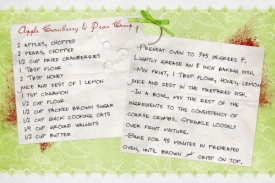 Apple Cranberry & Pear Crisp
2 apples, chopped
2 pears, chopped
1/2 cup dried cranberries
1 tbsp flour
2 tbsp honey
juice and zest of 1 lemon
1 tsp cinnamon
1/2 cup flour
1/2 cup packed brown sugar
1/2 cup quick cooking oats
1/4 cup ground walnuts
1/2 cup butter
-Preheat oven to 375 degrees F.
Lightly grease an 8 inch baking dish.
-Mix fruit, 1 tbsp flour, honey, lemon
juice and zest in the prepared dish.
-In a bowl, mix the rest of the
ingredients to the consistency of
coarse crumbs. Sprinkle loosely
over fruit mixture.
-Bake for 45 minutes in preheated
oven, until brown and crisp on top.